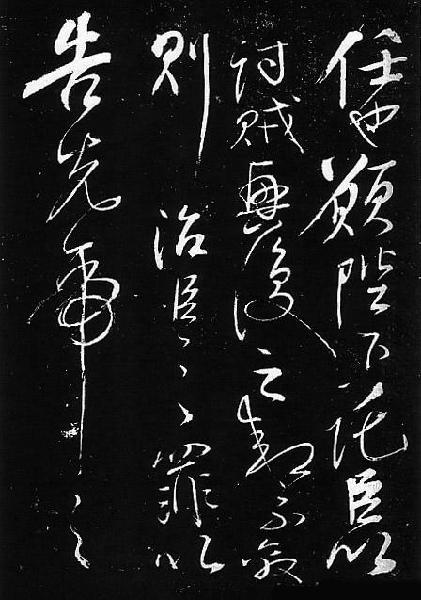 任也願陛下托臣以
討賊興復之效不效
則治臣之罪以
告先帝之